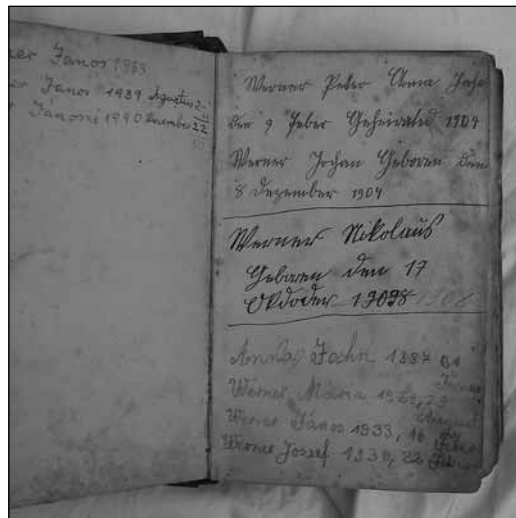 er Janos 1955
er Janos 1989 Agustus 2
Jánosné 1990 November 22
Werner Peter Anna Jahn
den 9 Feber Geheirated 1904
Werner Johan Geboren dem
8 Dezember 1904
Werner Nikolaus
Geboren den 17
Okdoder 19098 1908
Anna Jahn 1887
Werner Maria
Werner János 1933, 16
Werner Jozsef 1930, 22